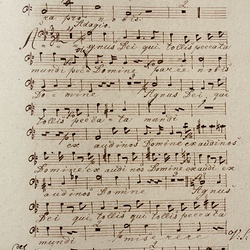 ra pro nobis
Adagio.
Agnus Dei qui tollis peccata
mundi parce Domine parce nobis
Domine Agnus Dei qui
tollis pecca-ta mundi
ex audinos Domine exaudinos
Domine exaudi nos Domine exaudi ex
audinos Domine Agnus
Dei qui tollis qui tollis peccata
mundi miserere